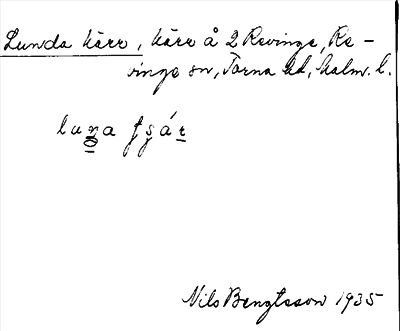 Lunda kärr, kärr å 2 Revinge, Re-
vinge sn, Torna hd, Malm. l.
Nils Bengtsson 1935